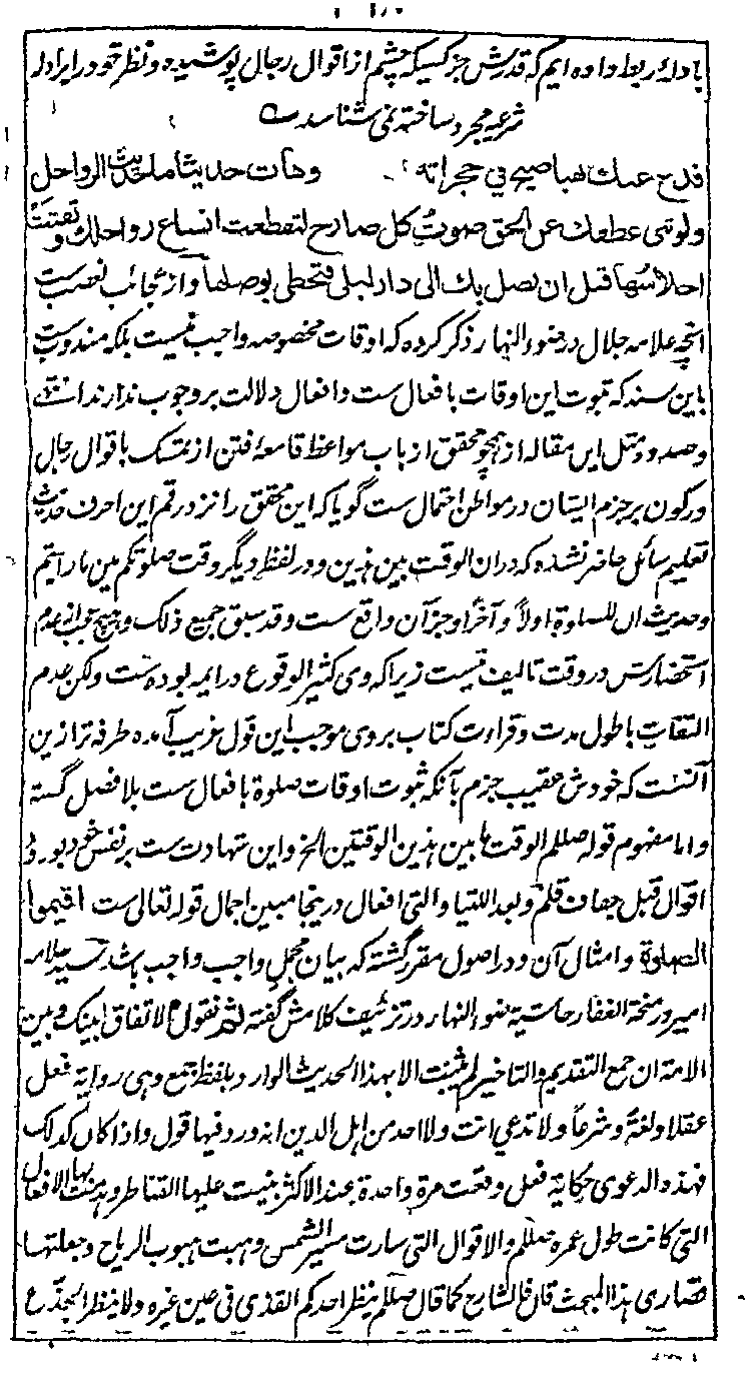 بادلهٔ ربط داده ایم که قدرش جز کسیکه چشم از اقوال رجال پوشیده و نظر خود را بر ادله
شرعیه مجرد ساخته نمی شناسد
فدع عنك نهبا صيح في حجراته وهات حديثا ما حديث الرواحل
ولو ثنى عطفك عن الحق صوت كل صارخ لتقطعت انساع رواحلك وتفتتت
احلاسها قبل ان تصل بك الى دار ليلى فتحظى بوصلها و از عجائب تعصب ست
انچه علامه جلال در ضوء النهار ذکر کرده که اوقات مخصوصه واجب نیست بلکه مندوب ست
باین سند که ثبوت این اوقات بافعال ست و افعال دلالت بر وجوب ندارند انتهی
و صدور مثل این مقاله از همچو محقق از باب مواعظ قامعهٔ فتن از تمسک باقوال رجال
و رکون بر جزم ایشان در مواطن احتمال ست گویا که این محقق را نزد رقم این احرف حدیث
تعلیم سائل حاضر نشده که دران الوقت بین هذین و در لفظ دیگر وقت صلوتکم بین ما رایتم
و حدیث ان للصلوة اولاً و آخراً و جز آن واقع ست و قد سبق جمیع ذلک و هیچ عجب از عدم
استحضارش در وقت تالیف نیست زیرا که وی کثیر الوقوع در ایمه بوده ست ولکن عدم
التفات با طول مدت و قراءت کتاب بر وی موجب این قول غریب آمده طرفه تر ازین
آنست که خودش عقیب جزم بآنکه ثبوت اوقات صلوة بافعال ست بلا فصل گفته
و اما مفهوم قوله صللم الوقت ما بین هذین الوقتین الخ و این شهادت ست بر نفس خود بورود
اقوال قبل جفاف قلم و بعد اللتیا والتی افعال درینجا مبین اجمال قوله تعالی ست اقیموا
الصلوة و امثال آن و در اصول مقرر گشته که بیان مجمل واجب واجب باشد سید علامه
امیر در منحة الغفار حاشیهٔ ضوء النهار در تزئیف کلامش گفته ثم نقول الاتفاق بینک و بین
الامة ان جمع التقدیم والتاخیر لم یثبت الا بهذا الحدیث الوارد بلفظ جمع وهی روایة فعل
عقلا ولغة وشرعاً ولا تدعی انت ولا احد من اهل الدین انه ورد فیها قول واذا کان کذلک
فهذه الدعوی حکایة فعل وقعت مرة واحدة عند الاکثر بنیت علیها القناطر وهدمت بها الافعال
التی کانت طول عمره صللم والاقوال التی سارت مسیر الشمس وهبت هبوب الریاح وجعلتها
قصاری هذا المبحث قان فالشارح کما قال صللم ینظر احدکم القذی فی عین غیره ولا ینظر الجذع